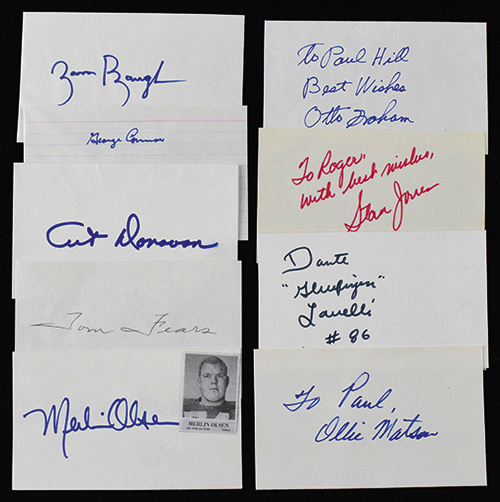 Sam Baugh
George Connor
Art Donovan
Tom Fears
Merlin Olsen
MERLIN OLSEN
To Paul Hill
Best Wishes
Otto Graham
To Roger,
with best wishes,
Stan Jones
Dante
"Gluefingers"
Lavelli
# 86
To Paul,
Ollie Matson